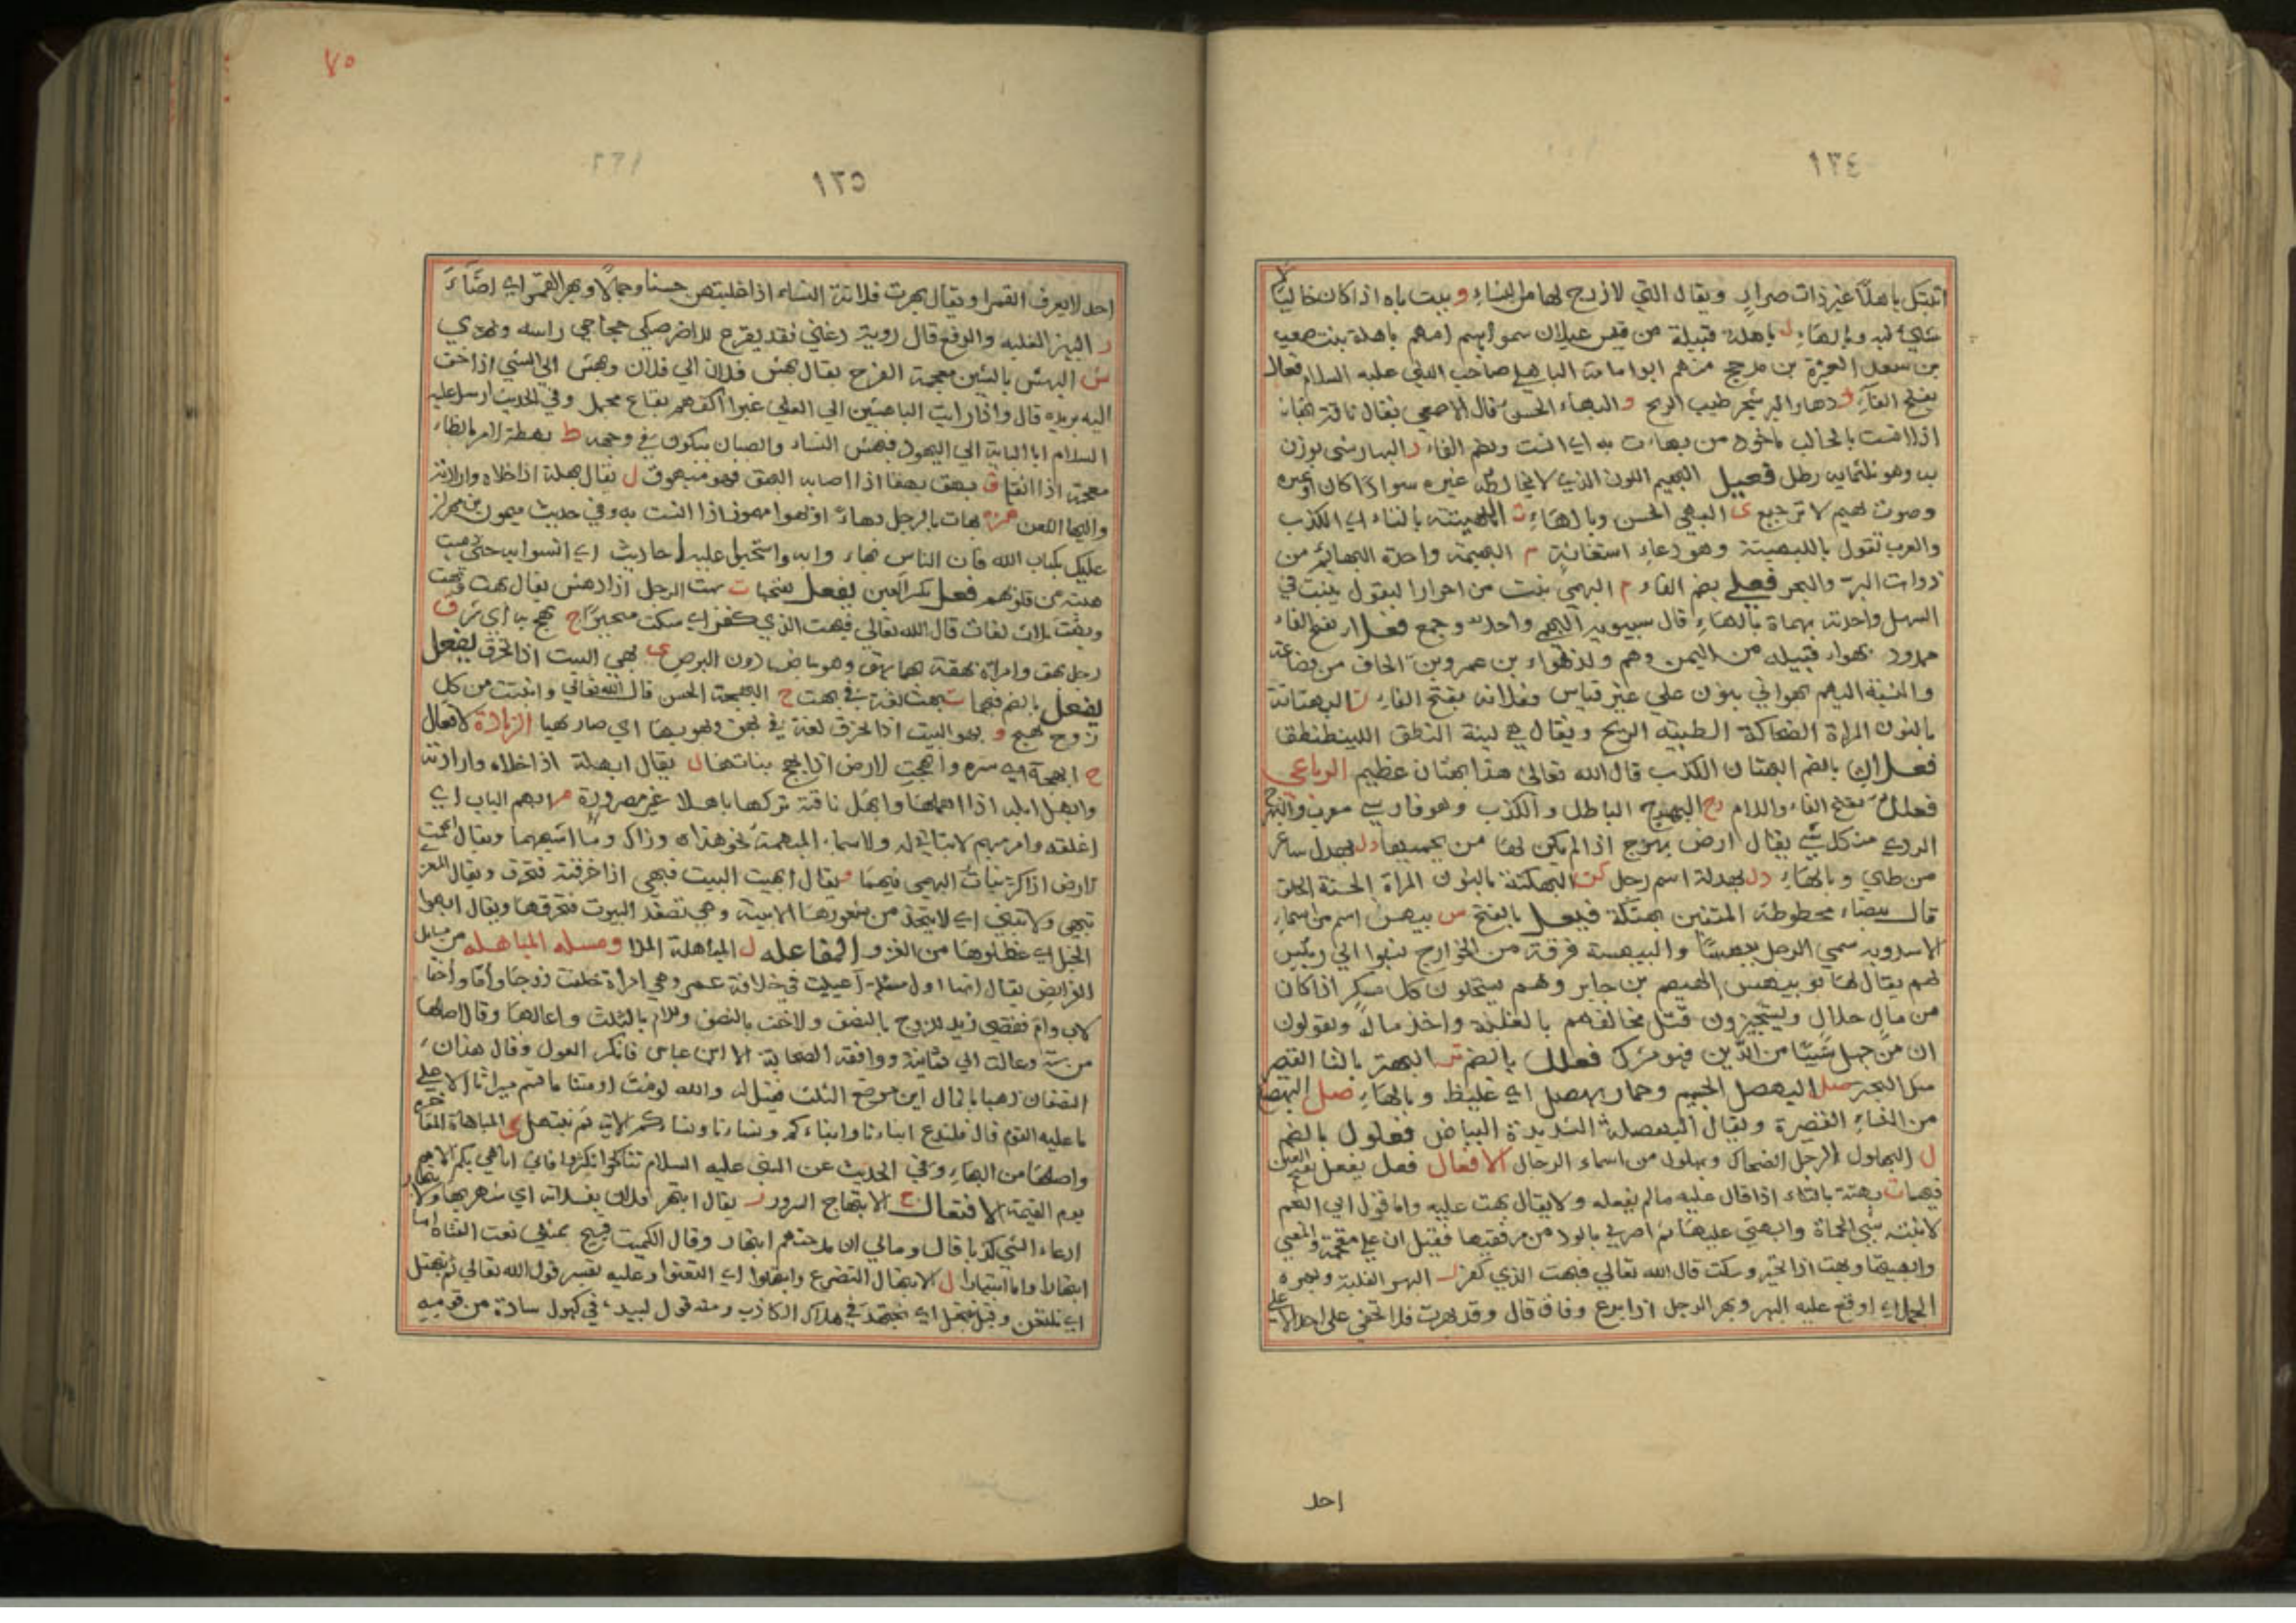 ١٣٤
اتيتك باهلا غير ذات صرار ويقال التي لا زوج لها من النساء و بيت باه اذا كان خاليا لا
شيء فيه وبالهاء ل باهلة قبيلة من قيس عيلان سموا باسم امهم باهلة بنت صعب
بن سعد العشيرة بن مذحج منهم ابو امامة الباهلي صاحب النبي عليه السلام فعال
بفتح الفاء البهار شجر طيب الريح و البهاء الحسن قال الاصمعي يقال ناقة بهاء
اذا انست بالحالب ماخوذ من بهأت به اي انست وبضم الفاء ر البهار شي يوزن
به وهو ثلثمايه رطل فعيل البهيم اللون الذي لا يخالطه غيره سوادا كان او غيره
وصوت بهيم لا ترجيع ي البهي الحسن وبالهاء ت البهيتة بالتاء اي الكذب
والعرب تقول باللبهيتة وهو دعاء استغاثة م البهيمة واحدة البهائم من
ذوات البر والبحر فعلى بضم الفاء م البهمى نبت من احرار البقول ينبت في
السهل واحدته بهماة بالهاء قال سيبويه البهمى واحدة وجمع فعلاء بفتح الفاء
ممدود بهراء قبيلة من اليمن وهم ولد بهراء بن عمرو بن الحاف من قضاعة
والنسبة اليهم بهراني بنون على غير قياس وفعلانه بفتح الفاء ن البهنانة
بالنون المراة الضحاكة الطيبة الريح ويقال هي لينة النطق اللين
فعلان بالضم البهتان الكذب قال الله تعالى هذا بهتان عظيم الرباعي
فعلل بفتح الفاء واللام رج البهرج الباطل والكذب وهو فارسي معرب والبهرج
الردي من كل شي يقال ارض بهرج اذا لم يكن لها من يحميها دل بهدل شاعر
من طي وبالهاء دل بهدلة اسم رجل كن البهكنة بالنون المراة الحسنة الخلق
قال بيضاء محطوطة المتنين بهكنة فيعل بالفتح س بيهس اسم من اسماء
الاسد وبه سمي الرجل بيهسا والبيهسية فرقة من الخوارج نسبوا الى رئيس
لهم يقال له ابو بيهس الهيصم بن جابر وهم يستحلون كل مسكر اذا كان
من مال حلال ويستجيزون قتل مخالفهم بالغلبة واخذ ماله ويقولون
ان من جهل شيئا من الدين فهو مشرك فعلل بالضم تر البهتر بالتا القصير
مثل البحتر صل البهصل الجسيم وحمار بهصل اي غليظ وبالهاء صل البهصلة
من النساء القصيرة ويقال البهصلة الشديدة البياض فعلول بالضم
ل البهلول الرجل الضحاك وبهلول من اسماء الرجال الافعال فعل يفعل بفتح العين
فيهما ت بهته بالتاء اذا قال عليه مالم يفعله ولا يقال بهت عليه واما قول ابي النجم
لابنته سبي الحماة وابهتي عليها ثم اضربي بالود من مرفقيها فقيل ان على مقحمة والمعنى
وابهتيها وبهت اذا تحير وسكت قال الله تعالى فبهت الذي كفر ر البهر الغلبة وبهره
الحمل اي اوقع عليه البهر وبهر الرجل اذا برع وفاق قال وقد بهرت فلا تخفى على احد الا على
احد
٧٥
١٣٥
احد لا يعرف القمرا ويقال بهرت فلانة النساء اذا غلبتهن حسنا وجمالا وبهر القمر اي اضاء
ز البهز الغلبه والدفع قال روبة دعني فقد يقرع للاضز صكي حجاجي راسه وبهزي
ش البهش بالشين معجمة الفرح يقال بهش فلان الى فلان وبهش الى الشي اذا خف
اليه يريده قال واذا رايت الباهشين الى العلى غبرا اكفهم بقاع ممحل وفي الحديث ارسل عليه
السلام ابا لبابة الى اليهود فبهش النساء والصبيان يبكون في وجهه ظ بهظه الامر بالظاء
معجمة اذا اثقله ق بهق بهقا اذا اصابه البهق فهو مبهوق ل يقال بهله اذا خلاه وارادته
والبهل اللعن همزة بهات بالرجل بهاءً وبهوا اذا انست به وفي حديث ميمون بن مهران
عليك بكتاب الله فان الناس بهاوا به واستخفوا عليه احاديث اي انسوا به حتى ذهبت
هيبته من قلوبهم فعل بكسر العين يفعل بفتحها ت بهت الرجل اذا دهش يقال بهت وبهت
وبهت ثلاث لغات قال الله تعالى فبهت الذي كفر اي سكت متحيرا ج بهج به اي سر ق
رجل بهق وامراة بهقة بهما بهق وهو بياض دون البرص ي بهي البيت اذا تخرق يفعل
يفعل بالضم فيهما ت بهت لغة في بهت ج البهجة الحسن قال الله تعالى وانبتت من كل
زوج بهيج و بهو البيت اذا تخرق لغة في بهي وبهو بهاء اي صار بهيا الزيادة الافعال
ج ابهجه اي سره وابهجت الارض اذا بهج نباتها ل يقال ابهله اذا خلاه وارادته
وابهل ابله اذا اهملها وابهل ناقته تركها باهلا غير مصرورة م ابهم الباب اي
اغلقه وامر مبهم لا ماتى له والاسماء المبهمة نحو هذا وذاك وما اشبههما ويقال ابهمت
الارض اذا كثر نبات البهمى فيها و يقال ابهيت البيت فبهي اذا خرقته فتخرق ويقال المعز
تبهي ولا تبني اي لا يتخذ من شعورها الابنية وهي تصعد البيوت فتخرقها ويقال ابهوا
الخيل اي عطلوها من الغزو المفاعله ل المباهلة الملاعنة ومسله المباهله من مسايل
الفرايض يقال انها اول مسئلة اعيلت في خلافة عمر وهي امراة خلفت زوجا واما واختا
لاب وام فقضى زيد للزوج بالنصف وللاخت بالنصف وللام بالثلث واعالها وقال اصلها
من ستة وعالت الى ثمانية ووافقه الصحابة الا ابن عباس فانكر العول وقال هذان
النصفان ذهبا بالمال اين موضع الثلث فقيل له والله لو مت او متنا ما قسم ميراثنا الا على
ما عليه القوم قال فلندع ابناءنا وابناءكم ونساءنا ونساءكم الاية ثم نبتهل ي المباهاة المفاخرة
واصلها من البهاء وفي الحديث عن النبي عليه السلام تناكحوا تكثروا فاني اباهي بكم الامم
يوم القيمة الافتعال ج الابتهاج السرور ر يقال ابتهر فلان بفلانة اي شهر بها والابتهار
ادعاء الشي كذبا قال وما بي ان مدحتهم ابتهار وقال الكميت قبيح بمثلي نعت الفتاة اما
ابتهارا واما ابتيارا ل الابتهال التضرع وابتهلوا اي التعنوا وعليه تفسير قول الله تعالى ثم نبتهل
اي نلتعن وقيل نبتهل اي نجتهد في هلاك الكاذب ومنه قول لبيد في كهول سادة من قومه